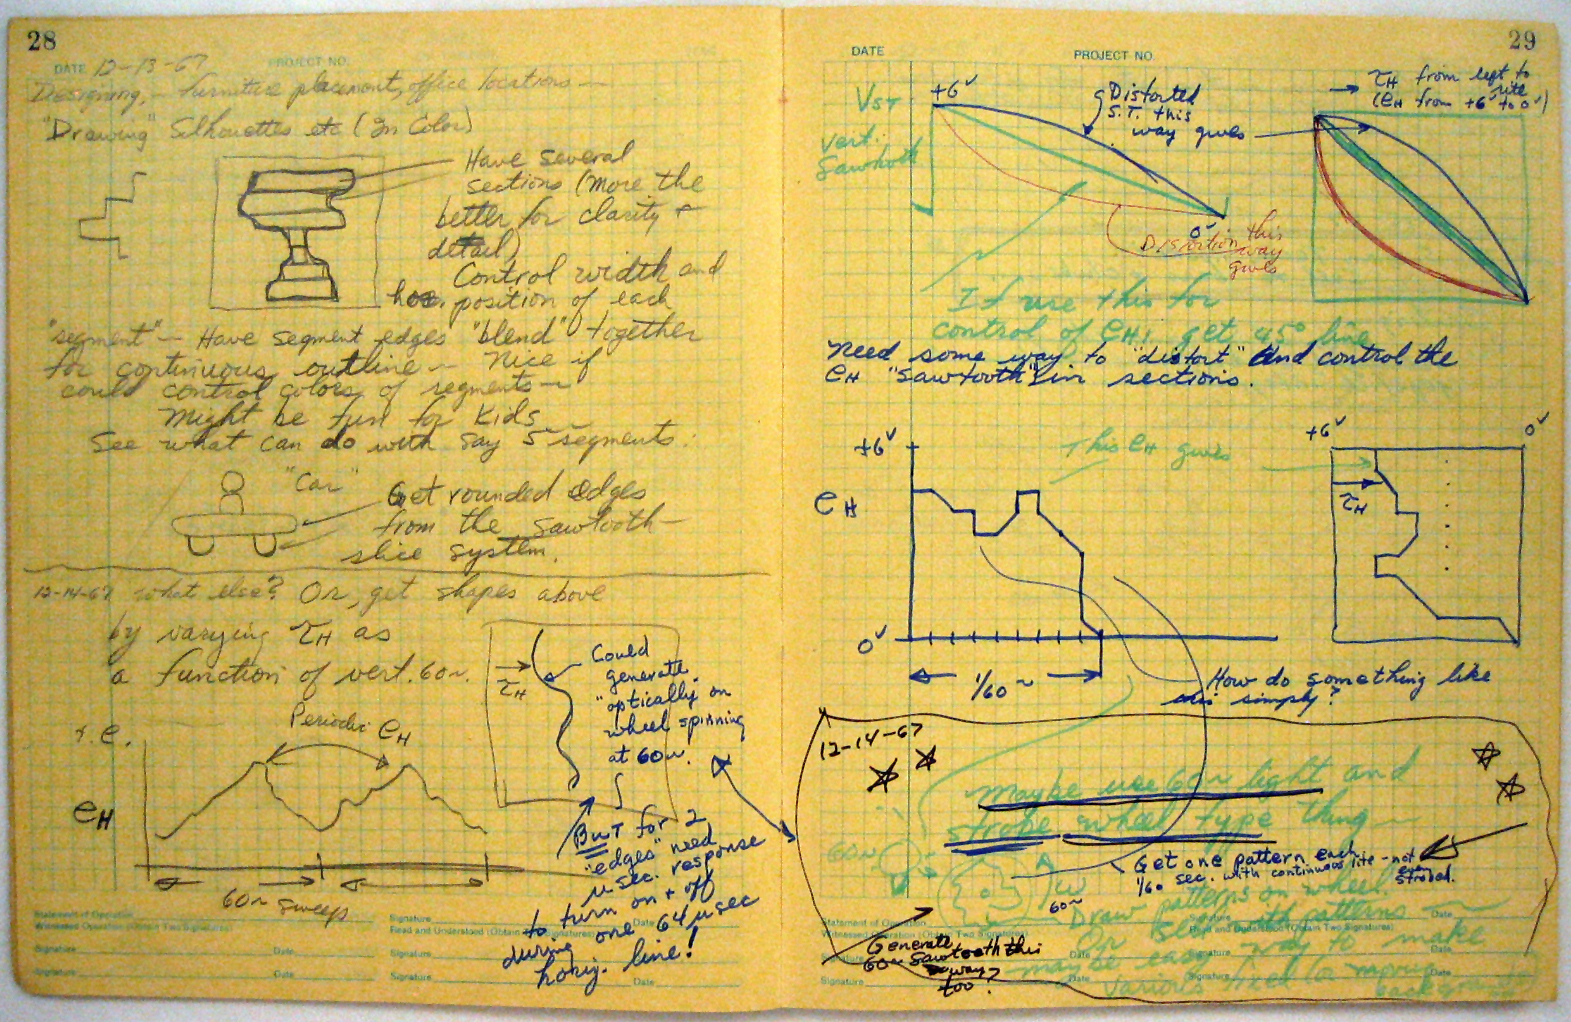 28
DATE 12-13-67 PROJECT NO.
Designing, - furniture placement, office locations -
"Drawing" Silhouettes etc (In Color)
Have several
sections (more the
better for clarity +
detail)
Control width and
hor. position of each
"segment" - Have segment edges "blend" together
for continuous outline - Nice if
could control colors of segments -
Might be fun for kids
See what can do with say 5 segments.
"Car"
Get rounded edges
from the sawtooth -
slice system.
12-14-67 what else? Or, get shapes above
by varying τH as
a function of vert. 60~.
τH
Could
generate
"optically on
wheel spinning
at 60~.
i.e.
Periodic eH
eH
60~ sweeps
BUT for 2
"edges" need
μ sec. response
to turn on + off
during one 64 μsec
horiz. line!
Statement of Operation
Witnessed Operation (Obtain Two Signatures)
Signature Date
Read and Understood (Obtain Two Signatures)
Signature Date
Signature Date
Signature Date
Signature Date
29
DATE PROJECT NO.
VST
Vert.
Sawtooth
+6v
0v
Distorted
S.T. this
way gives
→ τH from left to
rite
(eH from +6v to 0v)
Distortion this
way
gives
If use this for
control of eH, get 45° line
Need some way to "distort" and control the
eH "sawtooth" in sections.
+6v
eH
0v
1/60 ~
This eH gives
+6v 0v
τH
How do something like
this simply?
12-14-67
Maybe use 60~ light and
strobe wheel type thing
60~
ω
60~
Get one pattern each
1/60 sec. with continuous lite - not
even
strobed.
Draw patterns on wheel.
Or with patterns
maybe easy way to make
various fixed (or moving
Generate
60~ sawtooth this
way
too?
Statement of Operation
Witnessed Operation (Obtain Two Signatures)
Signature Date
Read and Understood (Obtain Two Signatures)
Signature Date
Signature Date
Signature Date